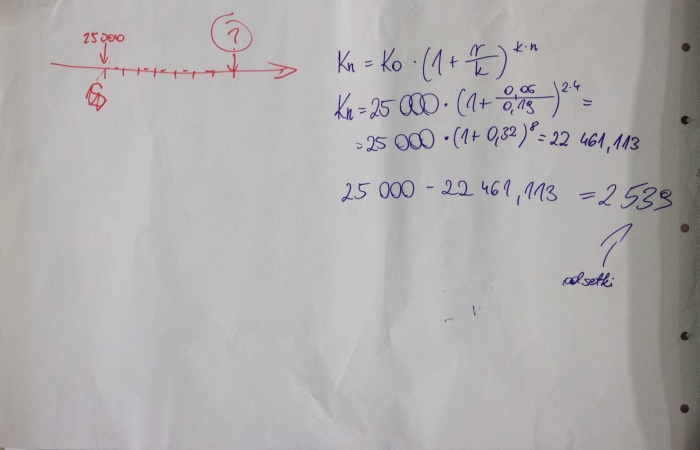 25 000
?
Kn = K0 · (1 + r/k)^k·n
Kn = 25 000 · (1 + 0,06/0,19)^2·4 =
= 25 000 · (1 + 0,32)^8 = 22 461,113
25 000 - 22 461,113 = 2 539
odsetki